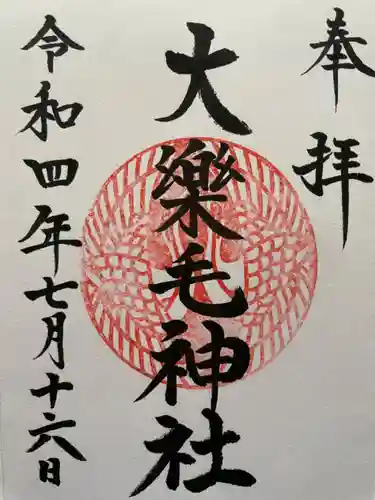 奉拝
大樂毛神社
令和四年七月十六日